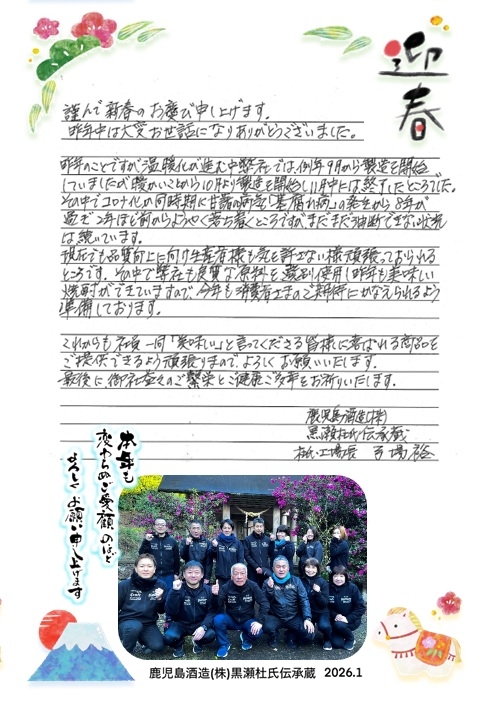 迎春
謹んで新春のお慶び申し上げます。
昨年中は大変お世話になりありがとうございました。
昨年のことですが温暖化が進む中弊社では例年9月から製造を開始
していましたが暖かいことから10月より製造を開始し11月中には終了したところでした。
その中でコロナ化の同時期に甘藷の病気「基腐れ病」の発生から8年が
過ぎ2年ほど前からようやく落ち着くところですがまだまだ油断できない状況
は続いています。
現在でも品質向上に向け生産者様も気を許さない様頑張っておられる
ところです。その中で弊社も良質な原料を選別使用し昨年も美味しい
焼酎ができていますので、今年も消費者さまのご期待にかなえられるよう
準備しております。
これからも社員一同「美味しい」と言ってくださる皆様に喜ばれる商品を
ご提供できるよう頑張りますので、よろしくお願いいたします。
最後に御社益々のご繁栄とご健康ご多幸をお祈りいたします。
鹿児島酒造(株)
黒瀬杜氏伝承蔵
杜氏・工場長 弓場裕
本年も
変わらぬご愛顧のほど
よろしくお願い申し上げます
鹿児島酒造(株)黒瀬杜氏伝承蔵 2026.1